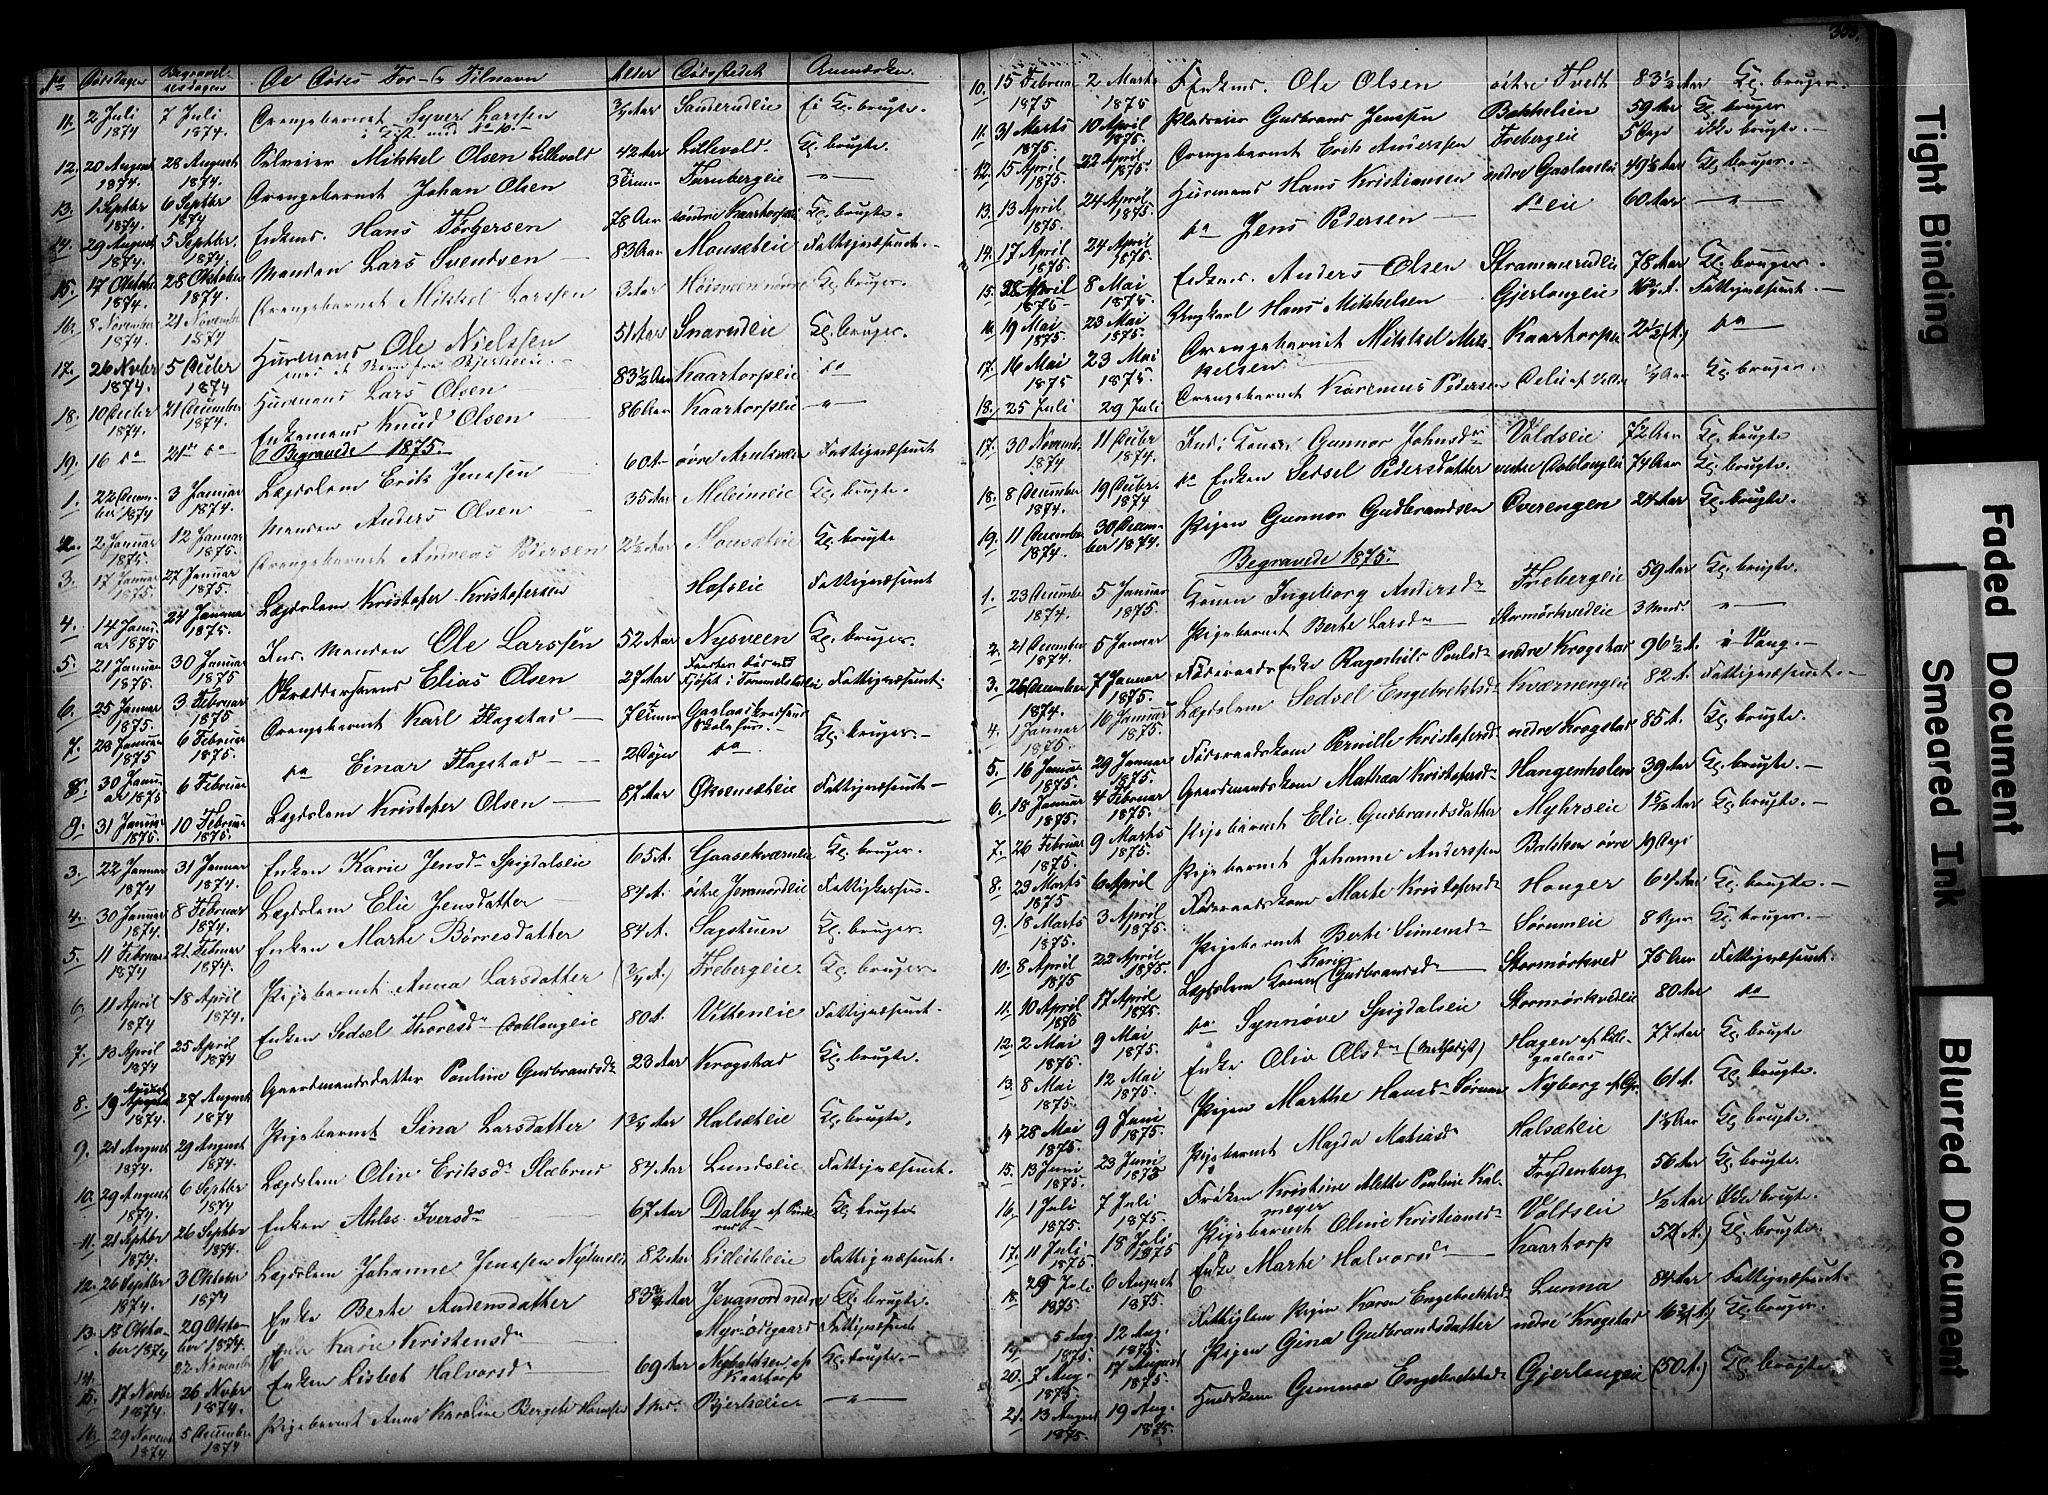 303.
No Dödsdagen Begravel-sesdagen De Dödes For- & Tilnavn Alder Dödsstedet Anmærkn.
11. 2 Juli 1874 7 Juli 1874. Drengebarnet Syver Larssen 3/4 Aar Sanderudeie Ei Kl. brugte.
12. 20 August 1874. 28 August 1874. Selveier Mikkel Olsen Lillevold 42 Aar Lillevold. Kl. brugte.
13. 1 Septbr 1874. 6 Septbr 1874 Drengebarnet Johan Olsen Furubergeie — " —
14. 29 August 1874. 5 Septbr. 1874. Enkemd. Hans Torgersen 78 Aar søndre Kaartorpeie Kl. brugte.
15. 17 Oktober 1874. 28 Oktober 1874. Manden Lars Svendsen — 83 Aar Monsæteie Fattigvæsenet. —
16. 8 November 1874. 21 November 1874 Drengebarnet Mikkel Larssen 3 Aar Høisveen Kl. bruger.
17. 26 Nvbr 1874. 5 Decbr 1874 Huusmand Ole Nielssen 51 Aar Snarudeie Kl. bruger.
18. 10 Decbr 1874. 21 December 1874. Huusmand Lars Olsen 83 1/2 Aar Kaartorpeie do
19. 16 do 21de do Enkemand Knud Olsen 86 Aar Kaartorpeie — " —
Begravede 1875.
1. 22 Decem-ber 1874 3 Januar 1874. Lægdslem Erik Jenssen 60 A. øvre Fattigvæsenet
2. 2 Januar 1875. 12 Januar 1875. Manden Anders Olsen 35 Aar Kl. brugte.
3. 17 Januar 1875. 27 Januar 1875. Drengebarnet Andreas Pedersen 2 1/2 Aar Monsæteie Kl. brugte
4. 14 Janu-ar 1875 24 Januar 1875. Lægdslem Kristofer Kristofersen Hafsleie Fattigvæsenet
5. 21 Januar 1875. 30 Januar 1875 Ind. Manden Ole Larssen 52 Aar Nysveen Kl. bruger.
6. 25 Januar 1875. 3 Februar 1875 Skræddersvend Elias Olsen 27 Aar Fattigvæsenet.
7. 28 Januar 1875 6 Februar 1875. Drengebarnet Karl Flagstad — Kl. bruger —
8. 30 Janu-ar 1875 6 Februar do Einar Flagstad — 2 Døgn do
9. 31 Januar 1875. 10 Februar 1875. Lægdslem Kristofer Olsen — 87 Aar Øksensæteie Fattigvæsenet —
3. 22 Januar 1874 31 Januar 1874. Enken Karie Jensdr Spigdalseie 65 A. Gaasekværneie Kl. bruger.
4. 30 Januar 1874. 8 Februar 1874. Lægdslem Elie Jensdatter — 84 A. østre Jevanordeie Fattigkassen.
5. 11 Februar 1874 21 Februar 1874. Enken Marte Børresdatter 84 A. Sagstuen Kl. bruger.
6. 11 April 1874 18 April 1874. Pigebarnet Anna Larsdatter (3/4 A.) Frebergeie Kl. bruger.
7. 13 April 1874 25 April 1874 Enken Sedsel Thoresdr Doblougeie 80 A. Vitteneie Fattigvæsenet.
8. 19 August 1874. 27 August 1874 Gaardmandsdatter Pauline Gudbrandsdr 23 Aar Krogstad Kl. brugte.
9. 21 August 1874. 29 August 1874. Pigebarnet Sina Larsdatter 1 3/4 Aar Halsæteie Kl. brugte.
10. 29 August 1874. 6 Septbr 1874 Lægdslem Oliv Eriksdr Stæbrud 84 Aar Lundseie Fattigvæsenet.
11. 21 Septbr 1874. 26 Septbr 1874. Enken Ahles Iversdr — 67 Aar Dalby Kl. brugtes
12. 26 Septbr 1874. 3 Oktober 1874 Lægdslem Johanne Jenssen 82 Aar Fattigvæsenet.
13. 18 Okto-ber 1874 29 Okto-ber 1874. Enke Berte Andersdatter 83 3/4 Aar Jevanord nedre Kl. brugte.
14. 22 November Karie Kristensdr Fattigvæsenet
15. 17 Novbr 1874. 26 Nvbr 1874. Enken Lisbet Halvorsdr 69 Aar Kaartorp Kl. brugte. —
16. 29 Novem 1874 5 December 1874 Pigebarnet Anne Karoline Bergete Hansen Bjerkeeie — " —
10. 15 Februar 1875 2 Marts 1875 Enkemd. Ole Olsen østre Tvedt 83 1/2 Aar Kl. bruger.
11. 31 Marts 1875. 10 April 1875. Pladseier Gudbrand Jenssen Bakkelien 59 Aar Kl. bruger
12. 15 April 1875. 22 April 1875. Drengebarnet Erik Anderssen Frebergeie 5 Dage ikke brugte. —
13. 13 April 1875. 24 April 1875. Huusmand Hans Kristiansen nedre Gaalaaseie 49 1/2 Aar Kl. bruger. —
14. 17 April 1875. 24 April 1875. do Jens Pedersen — do eie 60 Aar — " —
15. 28 April 1875 8 Mai 1875. Enkemd. Anders Olsen Strammerudeie 78 Aar Kl. bruger.
16. 19 Mai 1875. 23 Mai 1875. Ungkarl Hans Mikkelsen Gjerlougeie Fattigvæsenet. —
17. 16 Mai 1875 23 Mai 1875. Drengebarnet Mikkel Mik-kelsen — Kaartorpeie 2 1/2 (A.) do
18. 25 Juli 29 Juli Drengebarnet Karemus Pedersen Kl. bruger.
17. 30 Novemb. 1874 11 Decbr 1874. Ind. Konen Gunnor Johnsdr Voldseie 72 Aar Kl. brugte
18. 8 December 1874. 19 Decbr. 1874 do Enken Sedsel Pedersdatter nedre Dobloug 74 Aar Kl. brugte.
19. 11 December 1874. 30 Decem-ber 1874. Pigen Gunnor Gudbrandsen Overengen 24 Aar Kl. brugte.
Begravede 1875.
1. 23 December 1874. 5 Januar 1875 Konen Ingeborg Andersdr Frebergeie 59 Aar Kl. brugte.
2. 21 December 1874. 5 Januar Pigebarnet Berte Larsdr Stormørkvedeie 3 — " —
3. 26 December 1874. 7 Januar 1875. Føderaads Enke Ragnhild Paulsdr nedre Krogstad 96 1/2 A. i Vang. —
4. 1 Januar 1875. 16 Januar 1875. Lægdslem Sedsel Engebretsdr Kværnengeie 82 A. Fattigvæsenet. —
5. 16 Januar 1875. 29 Januar 1875. Føderaadskone Pernille Kristofersdr nedre Krogstad 85 A. Kl. brugte.
6. 18 Januar 1875. 4 Februar 1875. Gaardmandskone Mathea Kristofersdr Hangenholen 39 Aar Kl. brugte. —
7. 26 Februar 1875. 9 Marts 1875. Pigebarnet Elie Gudbrandsdatter Myhrseie Kl. brugte. —
8. 23 Marts 1875 6 April Pigebarnet Johanne Anderssen Balsken øvre
9. 18 Marts 1875. 3 April 1875. Føderaadskone Marte Kristofersdr Honger 64 Aar Kl. brugte. —
10. 8 April 1875 22 April 1875. Pigebarnet Berte Simensdr Sørumeie 8 Uger Kl. bruger. —
11. 10 April 1875 17 April 1875. Lægdslem Konen Karie Gudbrandsdr — Stormørkved 75 Aar Fattigvæsenet.
12. 2 Mai 1875. 9 Mai 1875. do Synnøve Spigdalseie Stormørkvedeie 80 Aar do
13. 8 Mai 1875. 12 Mai 1875. Enke Oliv Olsdr Hagen af Lille-gaalaas 77 Aar Kl. brugte
14 28 Mai 1875. 9 Juni 1875. Pigen Marthe Hansdr Sørum Nyborg af Gr. 61 A. Kl. brugte.
15. 13 Juni 1875. 23 Juni 1875 Pigebarnet Magda Matiasdr Halsæteie 1 3/4 Aar Kl. brugte.
16. 1 Juli 1875. 7 Juli 1875. Frøken Kristine Alette Pauline Kal-meyer Frydenberg 56 Aar Kl. brugte.
17. 11 Juli 1875. 18 Juli 1875 Pigebarnet Oline Kristiansdr Voldseie 1/2 Aar Ikke brugte.
18. 29 Juli 1875. 6 August 1875. Enke Marte Halvorsdr — Kaartorp 52 (A.) Kl. brugte.
19. 5 Aug. 1875. 12 Aug. 1875. Fattiglem Pigen Karen Engebretsdr Lunna 84 Aar Fattigvæsenet.
20. 7 Aug. 1875. 17 August 1875. Pigen Gina Gudbrandsdatter nedre Krogstad 16 3/4 (A.) Kl. bruger.
21. 13 August 1875. 19 Aug. 1875. Huuskone Gunnor Engebretsdr Gjerlougeie (50 A.) Kl. brugte
Tight Binding
Faded Document
Smeared Ink
Blurred Document